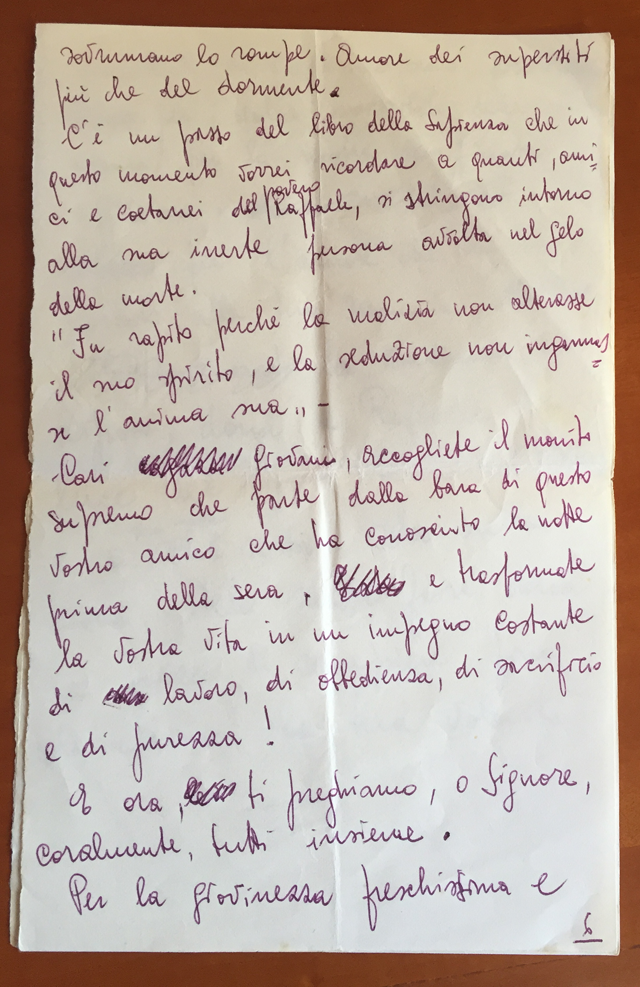 sovrumano lo rompe. Amore dei superstiti
più che del dormente.
C'è un passo del libro della Sapienza che in
questo momento vorrei ricordare a quanti, ami-
ci e coetanei del povero Raffaele, si stringono intorno
alla sua inerte persona avvolta nel gelo
della morte.
"Fu rapito perché la malizia non alterasse
il suo spirito, e la seduzione non ingannas=
se l'anima sua„ -
Cari giovani, accogliete il monito
supremo che parte dalla bara di questo
vostro amico che ha conosciuto la notte
prima della sera, e trasformate
la vostra vita in un impegno costante
di lavoro, di obbedienza, di sacrificio
e di purezza!
E ora, ti preghiamo, o Signore,
coralmente, tutti insieme.
Per la giovinezza freschissima e
6